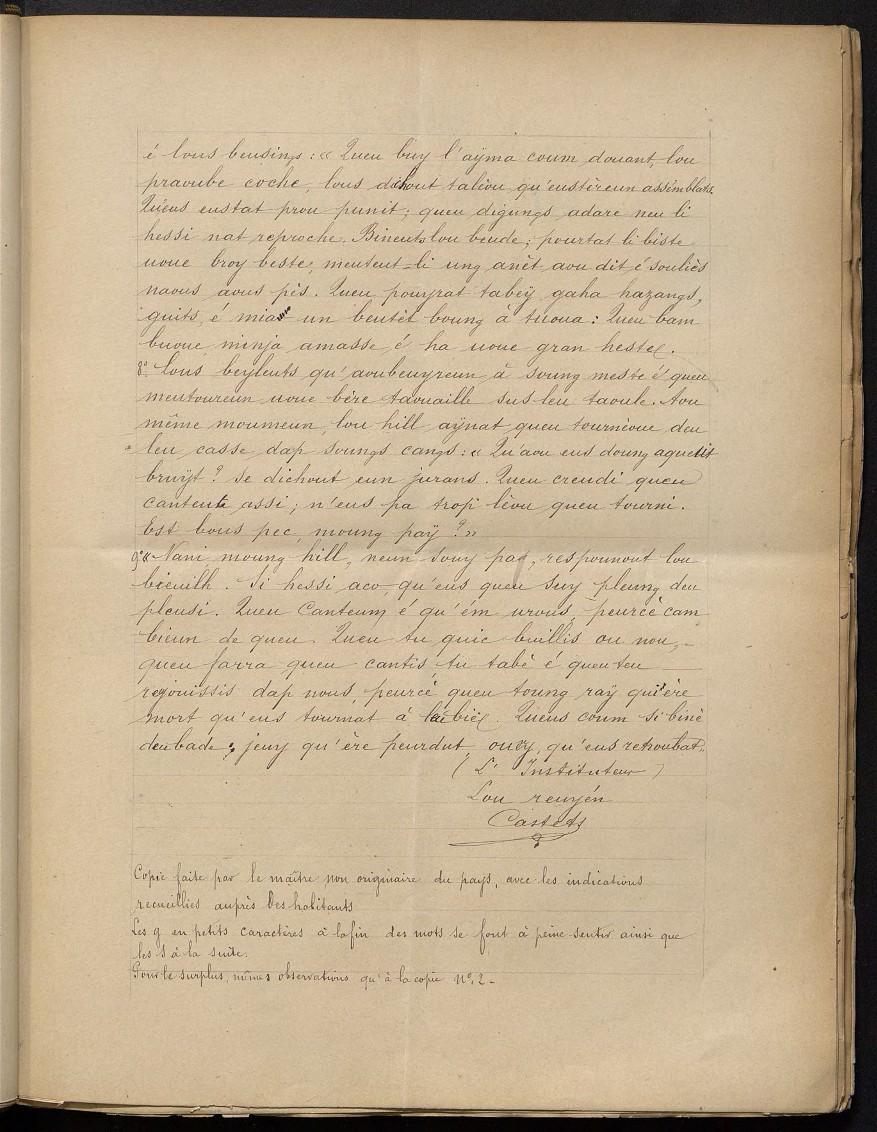 é lous beusings : « Queu buy l'ayma coum douant, lou
praoube coche, lous dichout talèou qu'eustèreun assemblats.
Qu'eus eustat prou punit ; queu digungs adare neu li
hessi nat reproche. Bineuts lou beude ; pourtat li biste
uoue broy beste, meuteut-li ung anèt aou dit é souliès
naous aous pès. Queu pourrat tabeÿ gaha hazangs,
guits, é mia un beutèt boung à tuoua : Queu bam
buoue, minja amasse é ha uoue gran heste.
8º. Lous beyleuts qu'aoubeuyreun à soung meste é queu
meutoureun uoue bère taouaille sus leu taoule. Aou
même moumeun, lou hill aÿnat queu tournèoue deu
leu casse dap soungs cangs : « Qu'aou eus doung aquelit
bruÿt ? se dichout eun jurans. Queu creudi queu
canteuts assi ; n'eus pa trop lèou queu tourni.
Est bous pec, moung paÿ ? »
9º « Nani, moung hill, neun souy pas, respounout lou
bieuilh. Si hessi aco, qu'eus queu suy pleung deu
pleusi. Queu canteum é qu'ém urous, peurcé cam
bieun de queu. Queu tu quic buillis ou nou,
queu farra queu cantis, tu tabé é queu teu
rejouissis dap nous, peurcé queu toung raÿ qui ère
mort qu'eus tournat à leu bie. Qu'eus coum si binè
deu bade ; jeuy qu'ère peurdut, ouey, qu'eus retroubat.
( L' Instituteur )
Lou reuyén
Castets
Copie faite par le maître non originaire du pays, avec les indications
recueillies auprès des habitants
Les g en petits caractères à la fin des mots se font à peine sentir ainsi que
les s à la suite.
Pour le surplus, mêmes observations qu'à la copie Nº. 2 -